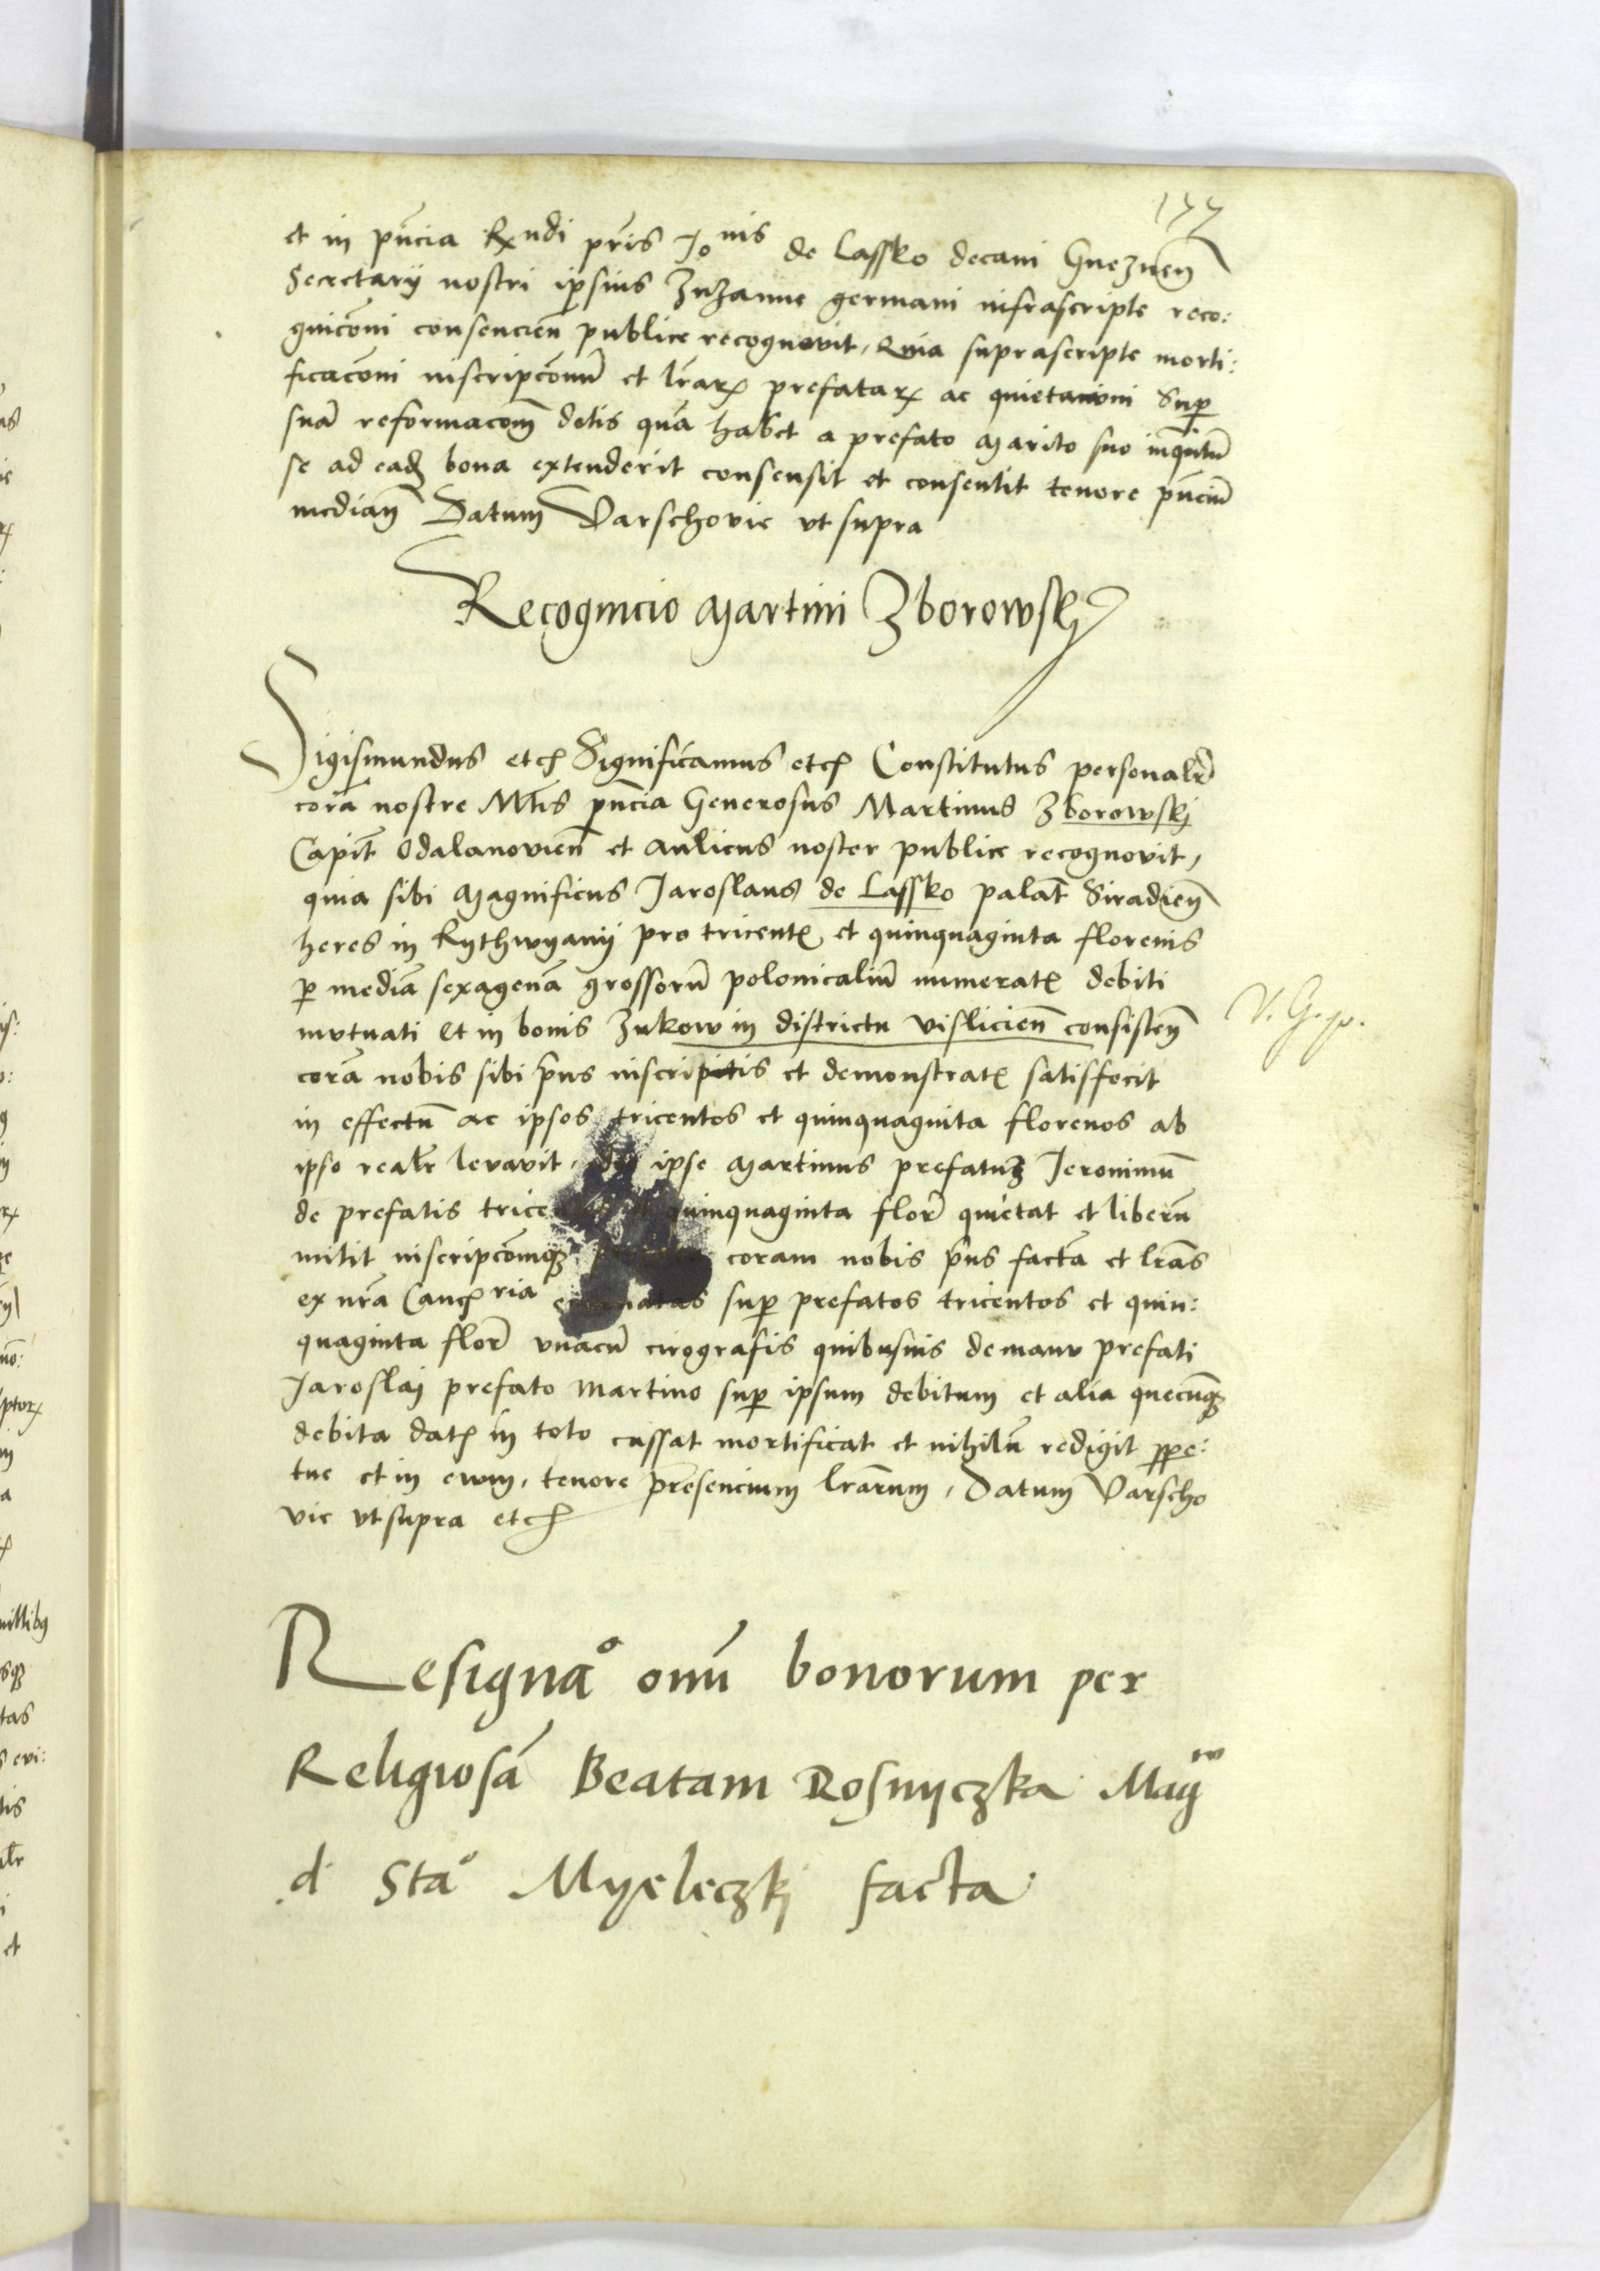 177
et in pn̄cia Rx ndi pr̄is Jo nis de Lassko decani Gneznen̄
Secretarij nostri ipsius Zuzanne germani infrascripte reco:
gnicōni consencien̄ publice recognovit, Quia suprascripte morti:
ficacōni inscripcōnuȝ et lr̄arꝝ prefatarꝝ ac quietacioni Sup̄
suā reformacōm dotis quā habet a prefato Marito suo inquātū
se ad eadȝ bona extenderit consensit et consentit tenore pn̄ciū
median̄ Datum Varschovie vt supra
Recognicio Martini Zborowskj
Sigismundus etcȝ Significamus etcȝ Constitutus personalr̄
corā nostre Mtis pn̄cia Generosus Martinus Zborowskj
Capit̄ Odalanovien̄ et Aulicus noster publice recognovit,
quia sibi Magnificus Jaroslaus de Lassko palat̄ Siradien̄
heres in Rythwyany pro tricentꝭ et quinquaginta florenis
p mediā sexagenā grossorū polonicaliū numeratꝭ debiti
mutuati et in bonis Zukow in districtu Vislicien̄ consisten̄
V. G. p.
corā nobis sibi p̄us inscriptis et demonstratꝭ satisfecit
in effectu ac ipsos tricentos et quinquaginta florenos ab
ipso realr̄ levavit, ipse Martinus prefatuȝ Jeronimū
de prefatis trice quinquaginta flor̄ quietat et liberū
mitit inscripcōmqȝ coram nobis p̄us factā et lr̄as
ex nr̄a Cancȝ ria sup prefatos tricentos et quin:
quaginta flor̄ vnacū cirografis quibusuis de manu prefati
Jaroslaj prefato Martino sup ipsum debitum et alia quecūqȝ
debita datꝭ in toto cassat mortificat et nihilū redigit ꝑpe:
tue et in ewm, tenore presencium lr̄arum, Datum Varscho
vie vt supra etcȝ
Resignaº om̄ bonorum per
Religiosā Beatam Rosnyczka Mag co
d Staº Myeleczkj facta